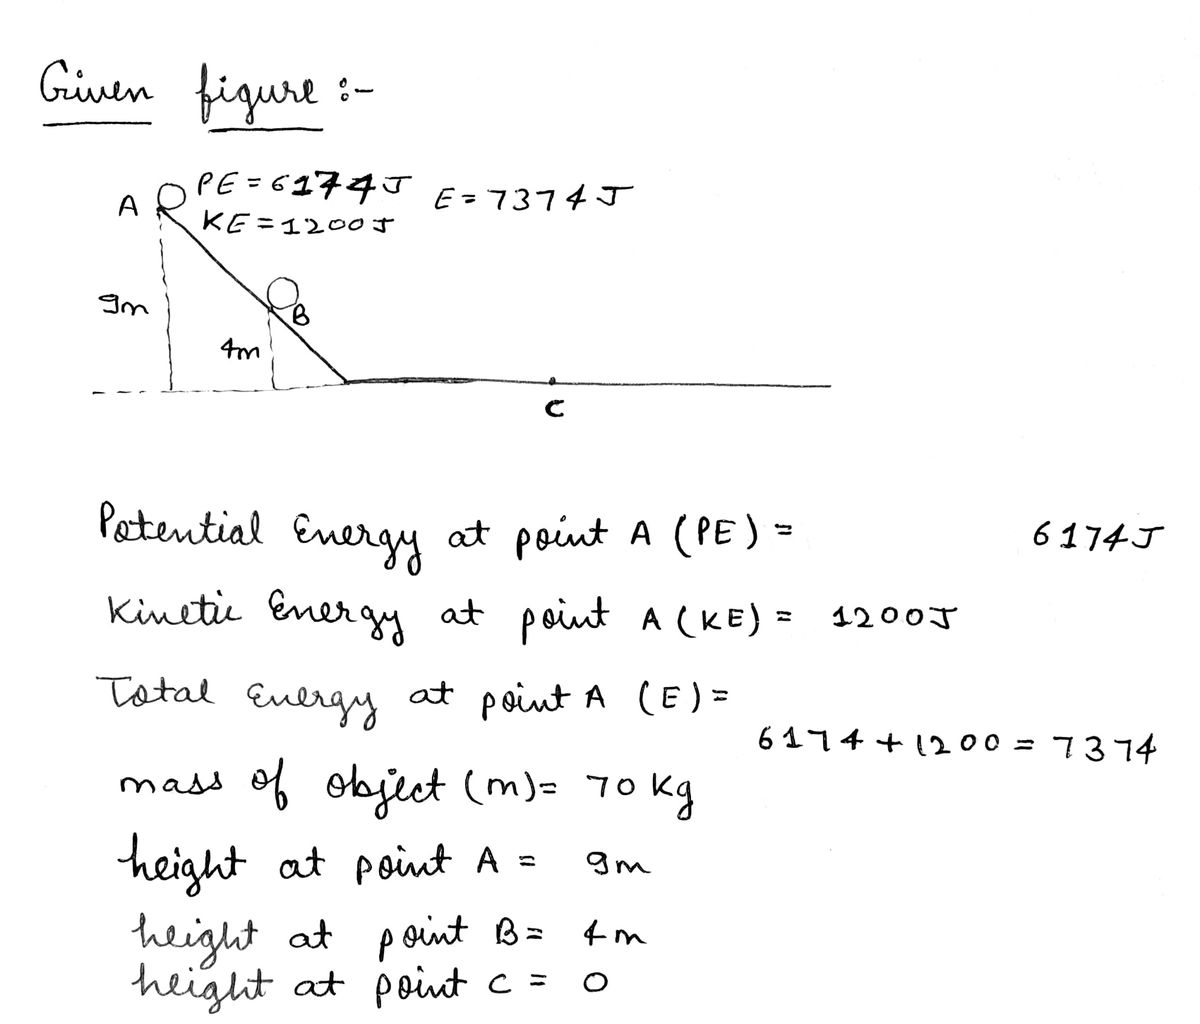 Given figure :-
A PE = 6174J E = 7374J
KE = 1200J
9m
B
4m
C
Potential Energy at point A (PE) = 6174J
Kinetic Energy at point A (KE) = 1200J
Total Energy at point A (E) =
6174 + 1200 = 7374
mass of object (m) = 70 Kg
height at point A = 9m
height at point B = 4m
height at point C = 0